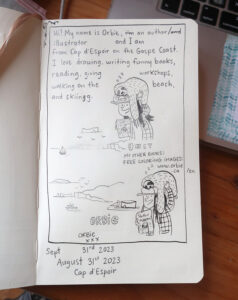 Hi! My name is Orbie, I'm an author/and
illustrator and I am
from Cap d'Espoir on the Gaspe Coast.
I love drawing, writing funny books,
reading, giving workshops,
walking on the beach,
and skiing.
MY OTHER BOOKS:
FREE COLORING IMAGES:
www.orbie.
ca /en
ORBIE
ORBIE
xxx
Sept 31st 2023
August 31st 2023
Cap d'Espoir